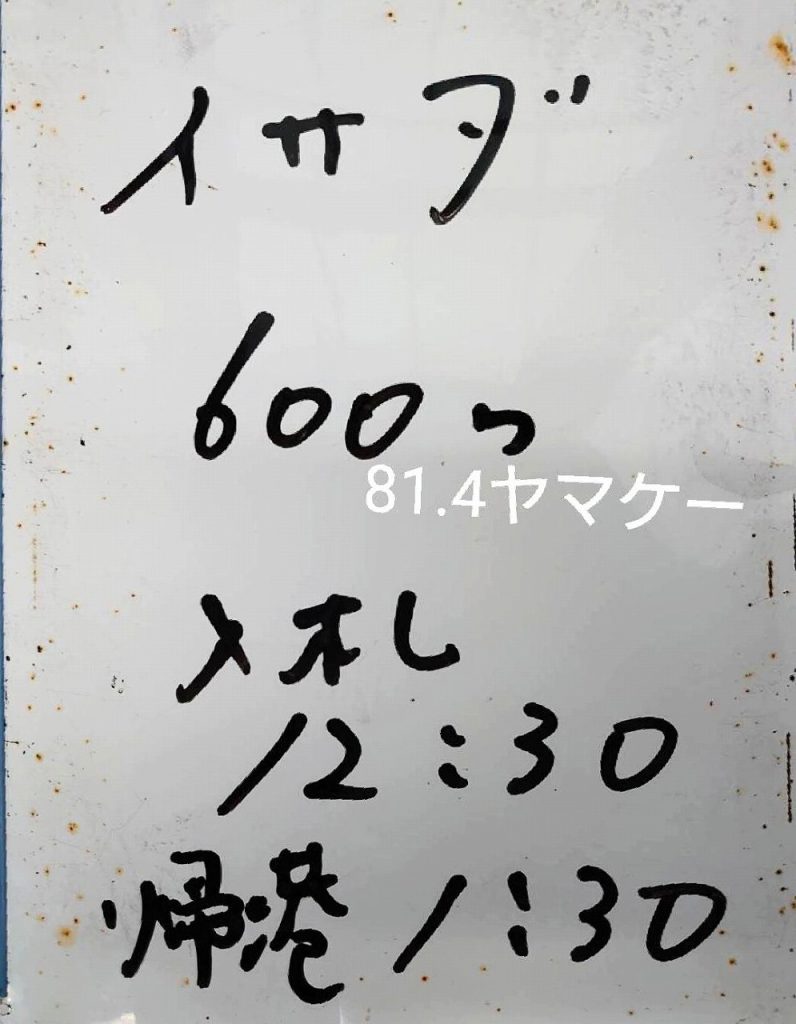 イサダ
600つ
81.4ヤマケー
入札
12:30
帰港 1:30